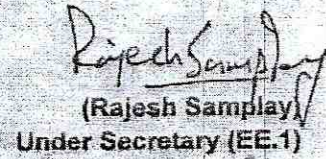 Rajesh Samplay
(Rajesh Samplay)
Under Secretary (EE.1)